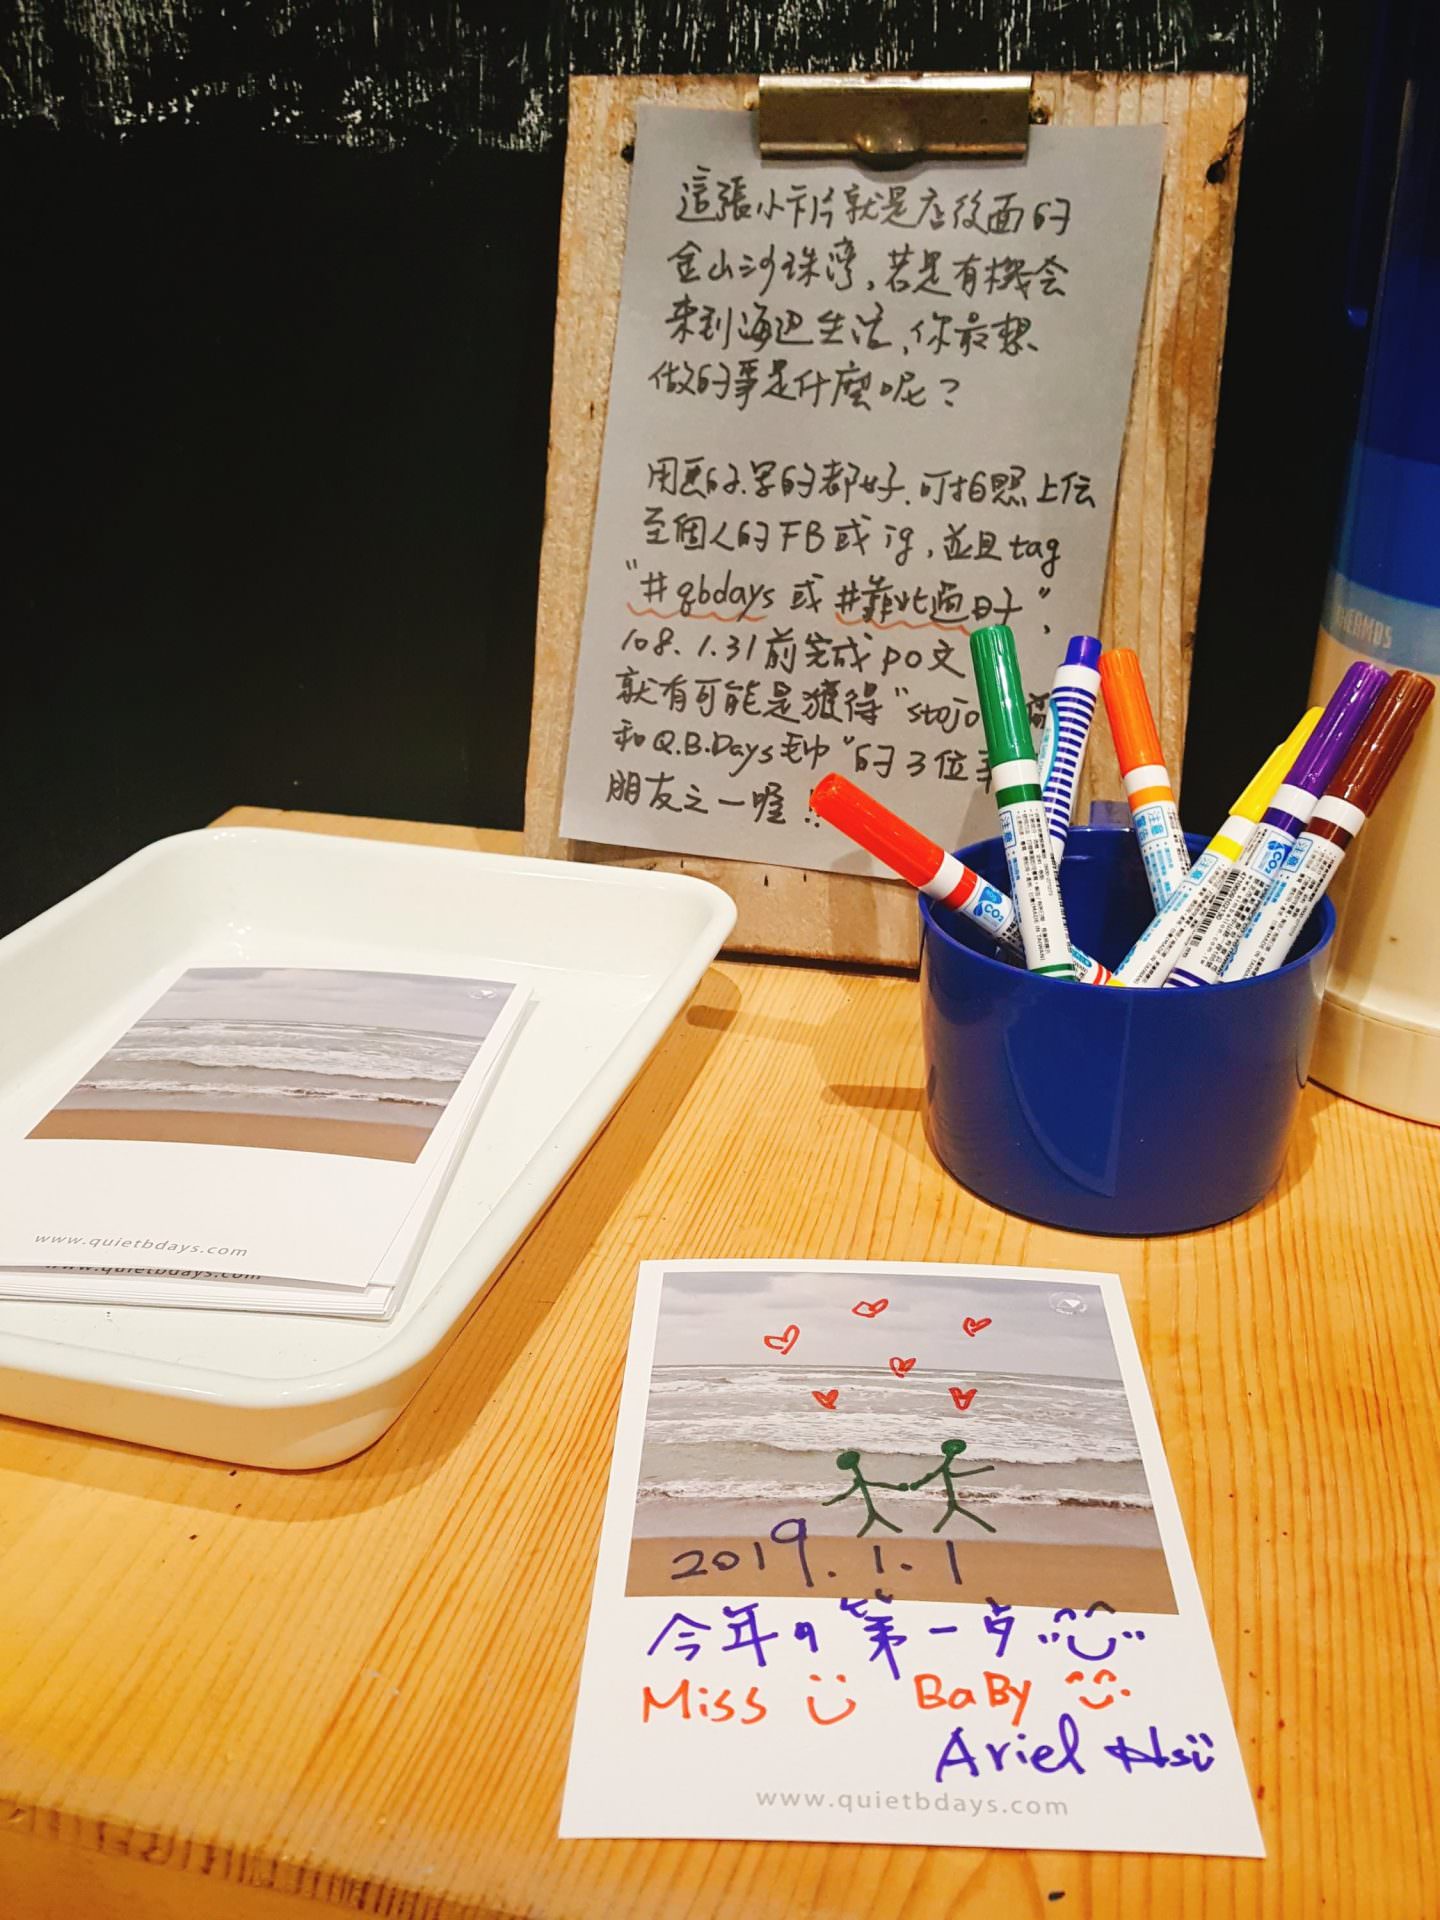 這張小卡片就是店後面的
金山沙珠灣，若是有機会
來到海边生活，你最想
做的事是什麼呢？
用画的.写的都好.可拍照上伝
至個人的FB或ig，並且tag
"#qbdays 或 #靠北過日子"，
108.1.31前完成po文
就有可能是獲得"stojo
和Q.B.Days毛巾"的3位幸
朋友之一喔!!
THERMOS
www.quietbdays.com
www.quietbdays.com
2019.1.1
今年の第一步
Miss BaBy
Ariel Hsu
www.quietbdays.com